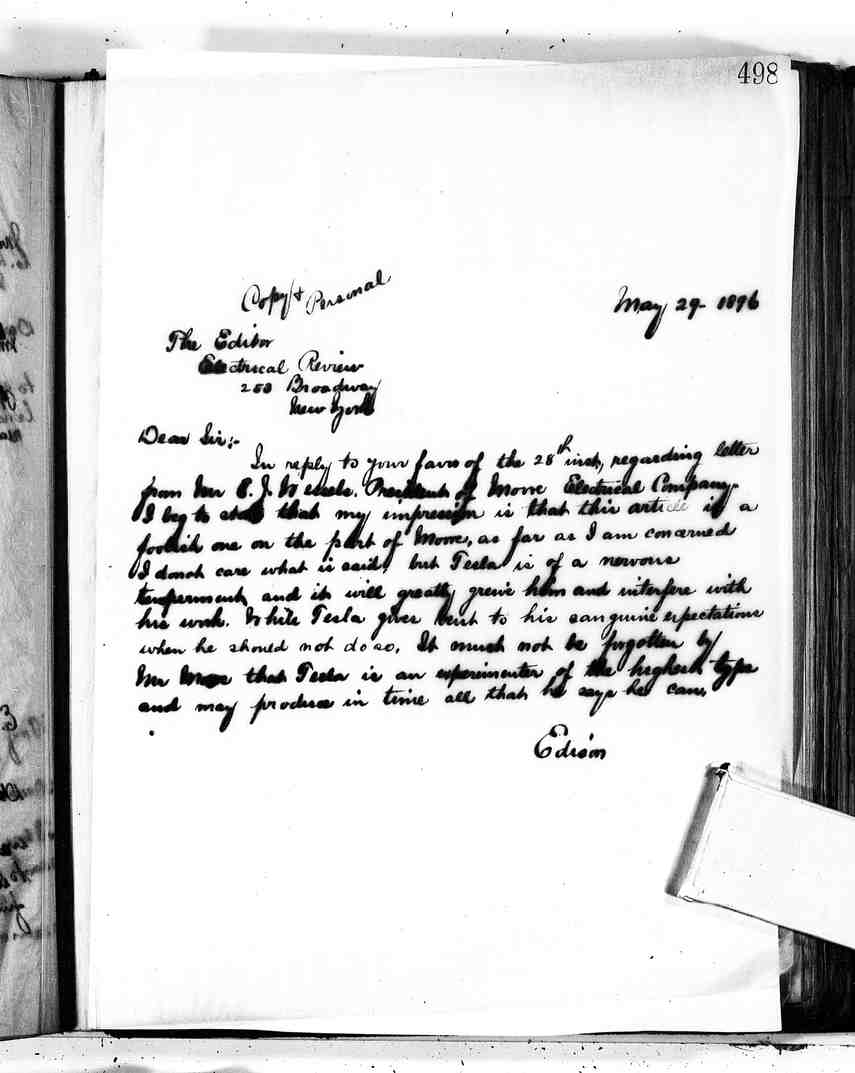 498
Copy & Personal
May 29 1896
The Editor
Electrical Review
253 Broadway
New York
Dear Sir:-
In reply to your favor of the 28th inst, regarding letter
from Mr E. J. President of Moore Electrical Company.
I beg to state that my impression is that this article is a
foolish one on the part of Moore, as far as I am concerned
I donot care what is said, but Tesla is of a nervous
temperment and it will greatly greive him and interfere with
his work. While Tesla gives vent to his sanguine expectations
when he should not do so, It must not be forgotten by
Mr Moore that Tesla is an experimenter of the highest type
and may produce in time all that he says he can.
Edison